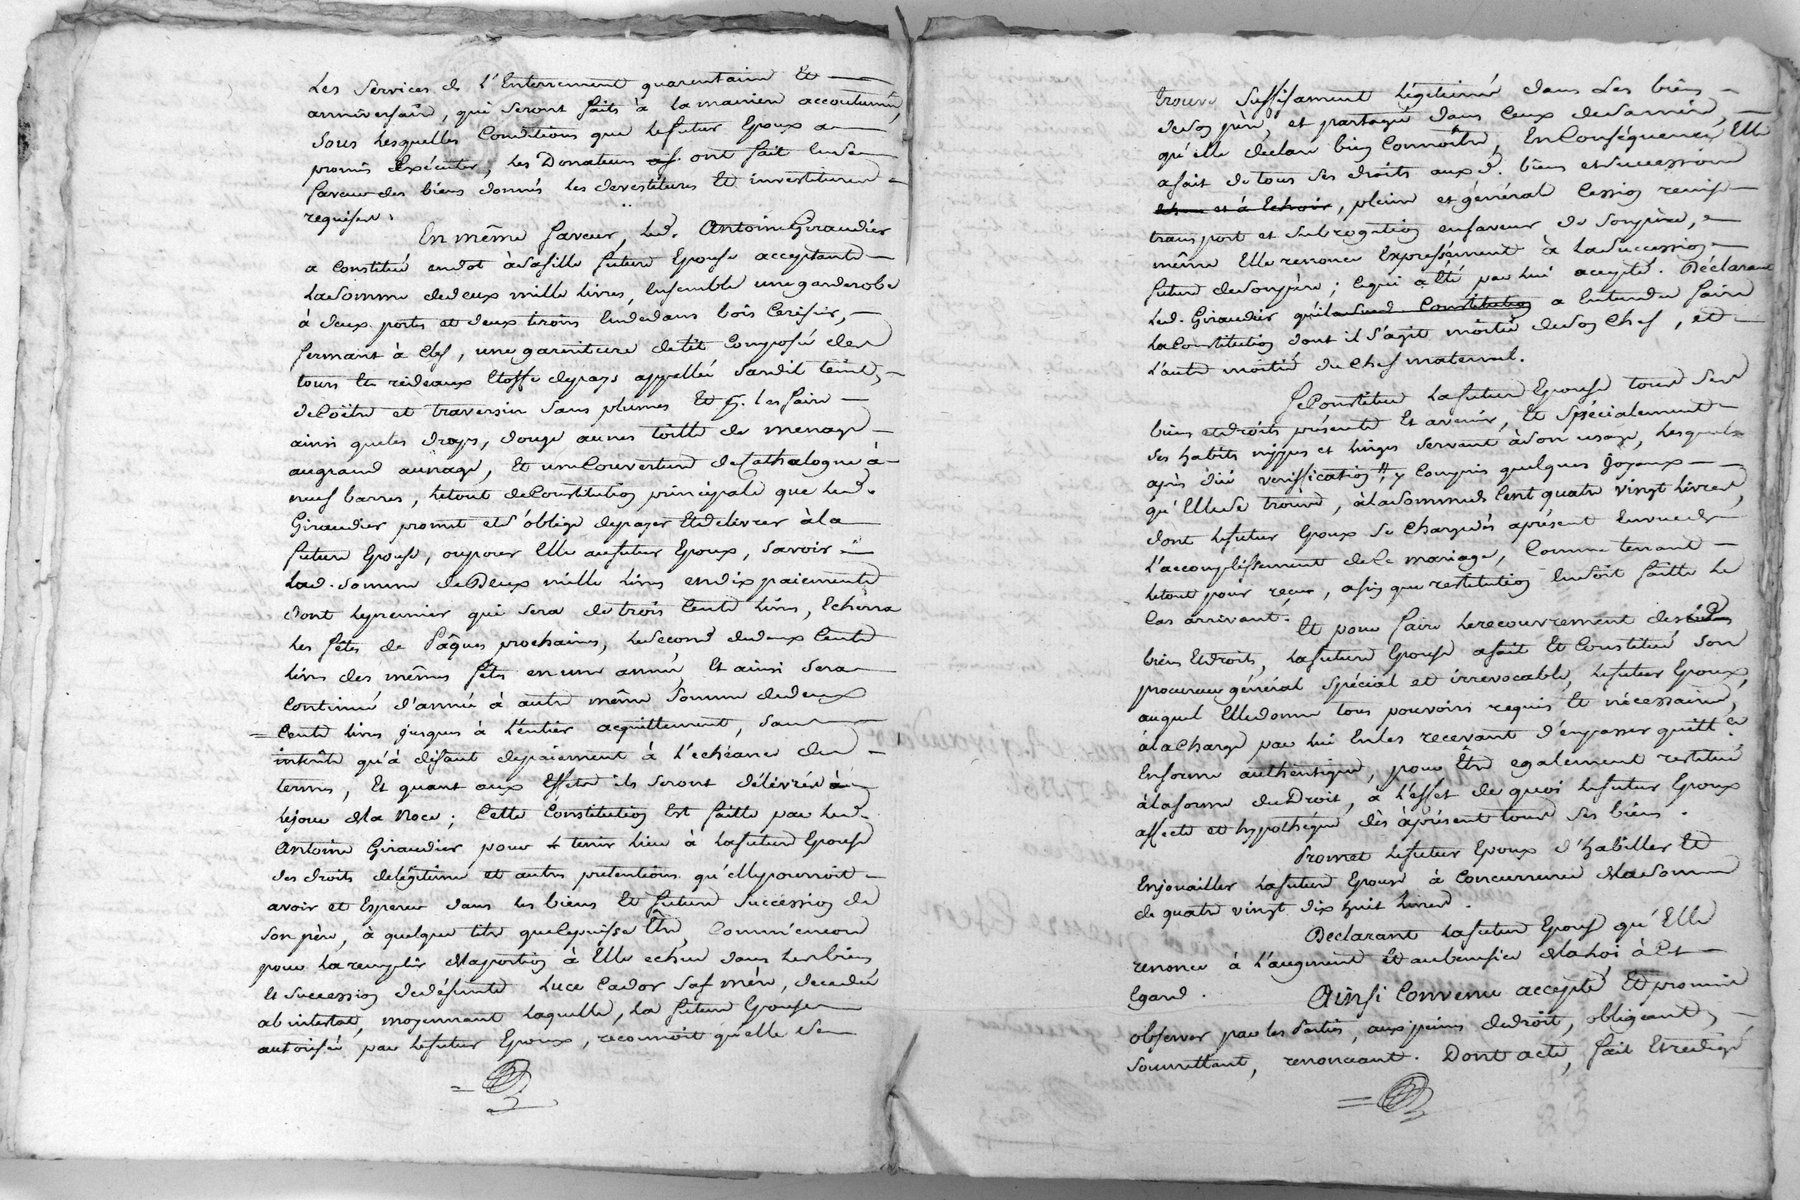 Les Services de l'Enterrement quarentaine Et
anniversaire, qui seront faits à la maniere accoutumée,
sous lesquelles Conditions que le futur Epoux a
promis d'Exécuter, les Donateurs ont fait en sa
faveur des biens donnés les devestitures Et investitures
requises.
En même faveur, led. Antoine Giraudier
a Constitué en dot à sa fille future Epouse acceptante
la somme de deux mille livres, Ensemble une garderobe
à deux portes et deux tiroirs Endedans bois Cerisier,
fermant à Clef, une garniture de lit Composée de
tours Et rideaux Etoffe du pays appellée teint,
de Coëtre et traversin sans plumes Et les faire
ainsi que les draps, douze aunes toille de menage
au grand aunage, Et une Couverture de Cathalogne à
neuf barres, le tout de Constitution principale que led.
Giraudier promet et s'oblige de payer Et délivrer à la
future Epouse, ou pour Elle au futur Epoux, savoir
lad. somme de Deux mille livres en dix paiements
dont le premier qui sera de trois Cents livres, Echerra
les fêtes de Pâques prochaines, le second de deux Cents
livres des mêmes fêtes en une année, Et ainsi sera
Continué d'année à autre même somme de deux
Cents livres jusques à l'entier acquittement, sans
interêts qu'à défaut de paiement à l'echéance des
termes, Et quant aux Effets ils seront délivrés
le jour de la Noce; Cette Constitution Est faitte par led.
Antoine Giraudier pour tenir lieu à la future Epouse
des droits de légitime et autres prétentions qu'elle pourroit
avoir et Esperer dans les biens Et future Succession de
son père, à quelque titre que ce puisse Etre, Comme encore
pour la remplir de la portion à Elle echue dans les biens
Et succession de défunte Luce Cador sa mère, decedée
ab intestat, moyennant laquelle, la future Epouse
autorisée par le futur Epoux, reconnoit qu'elle se
trouve suffisament légitimée dans les biens
de son père, et partagée dans Ceux de sa mère,
qu'elle declare bien Connoitre, En Conséquence, Elle
a fait de tous ses droits auxd. biens et succession
et à Echoir, pleine et générale Cession remise
transport et subrogation en faveur de son père,
même Elle renonce Expressément à la succession
future de son père; ce qui a été par lui accepté. Déclarant
led. Giraudier Constitution a Entendu faire
la Constitution dont il s'agit moitié de son Chef, et
l'autre moitié du Chef maternel.
Se Constitue la future Epouse tous ses
biens et droits présents Et avenir, Et spécialement
ses habits nippes et linges servant à son usage, lesquels
après due vérification, y Compris quelques joyaux
qu'Elle se trouve, à la somme de Cent quatre vingt livres,
dont le futur Epoux se Charge dès aprésent Envue de
l'accomplissement de Ce mariage, Comme tenant
le tout pour reçu, afin que restitution En soit faitte le
Cas arrivant.
Et pour faire le recouvrement desd.
biens Et droits, la future Epouse a fait Et Constitué son
procureur général spécial et irrevocable, le futur Epoux,
auquel Elle donne tous pouvoirs requis Et nécessaires,
à la Charge par lui En les recevant d'en passer quittce.
En forme authentique, pour Etre egalement restitué
à la forme du Droit, à l'effet de quoi le futur Epoux
affecte et hypothéque dès aprésent tous ses biens.
Promet le futur Epoux d'habiller Et
Enjouailler la future Epouse à Concurrence de la somme
de quatre vingt dix huit livres.
Declarant la future Epouse qu'Elle
renonce à l'augment Et au benefice de la loi à Cet
Egard.
Ainsi Convenu accepté Et promis
observer par les Parties, aux peines de droit, obligeant,
soumettant, renonceant. Dont acte, fait Et redigé